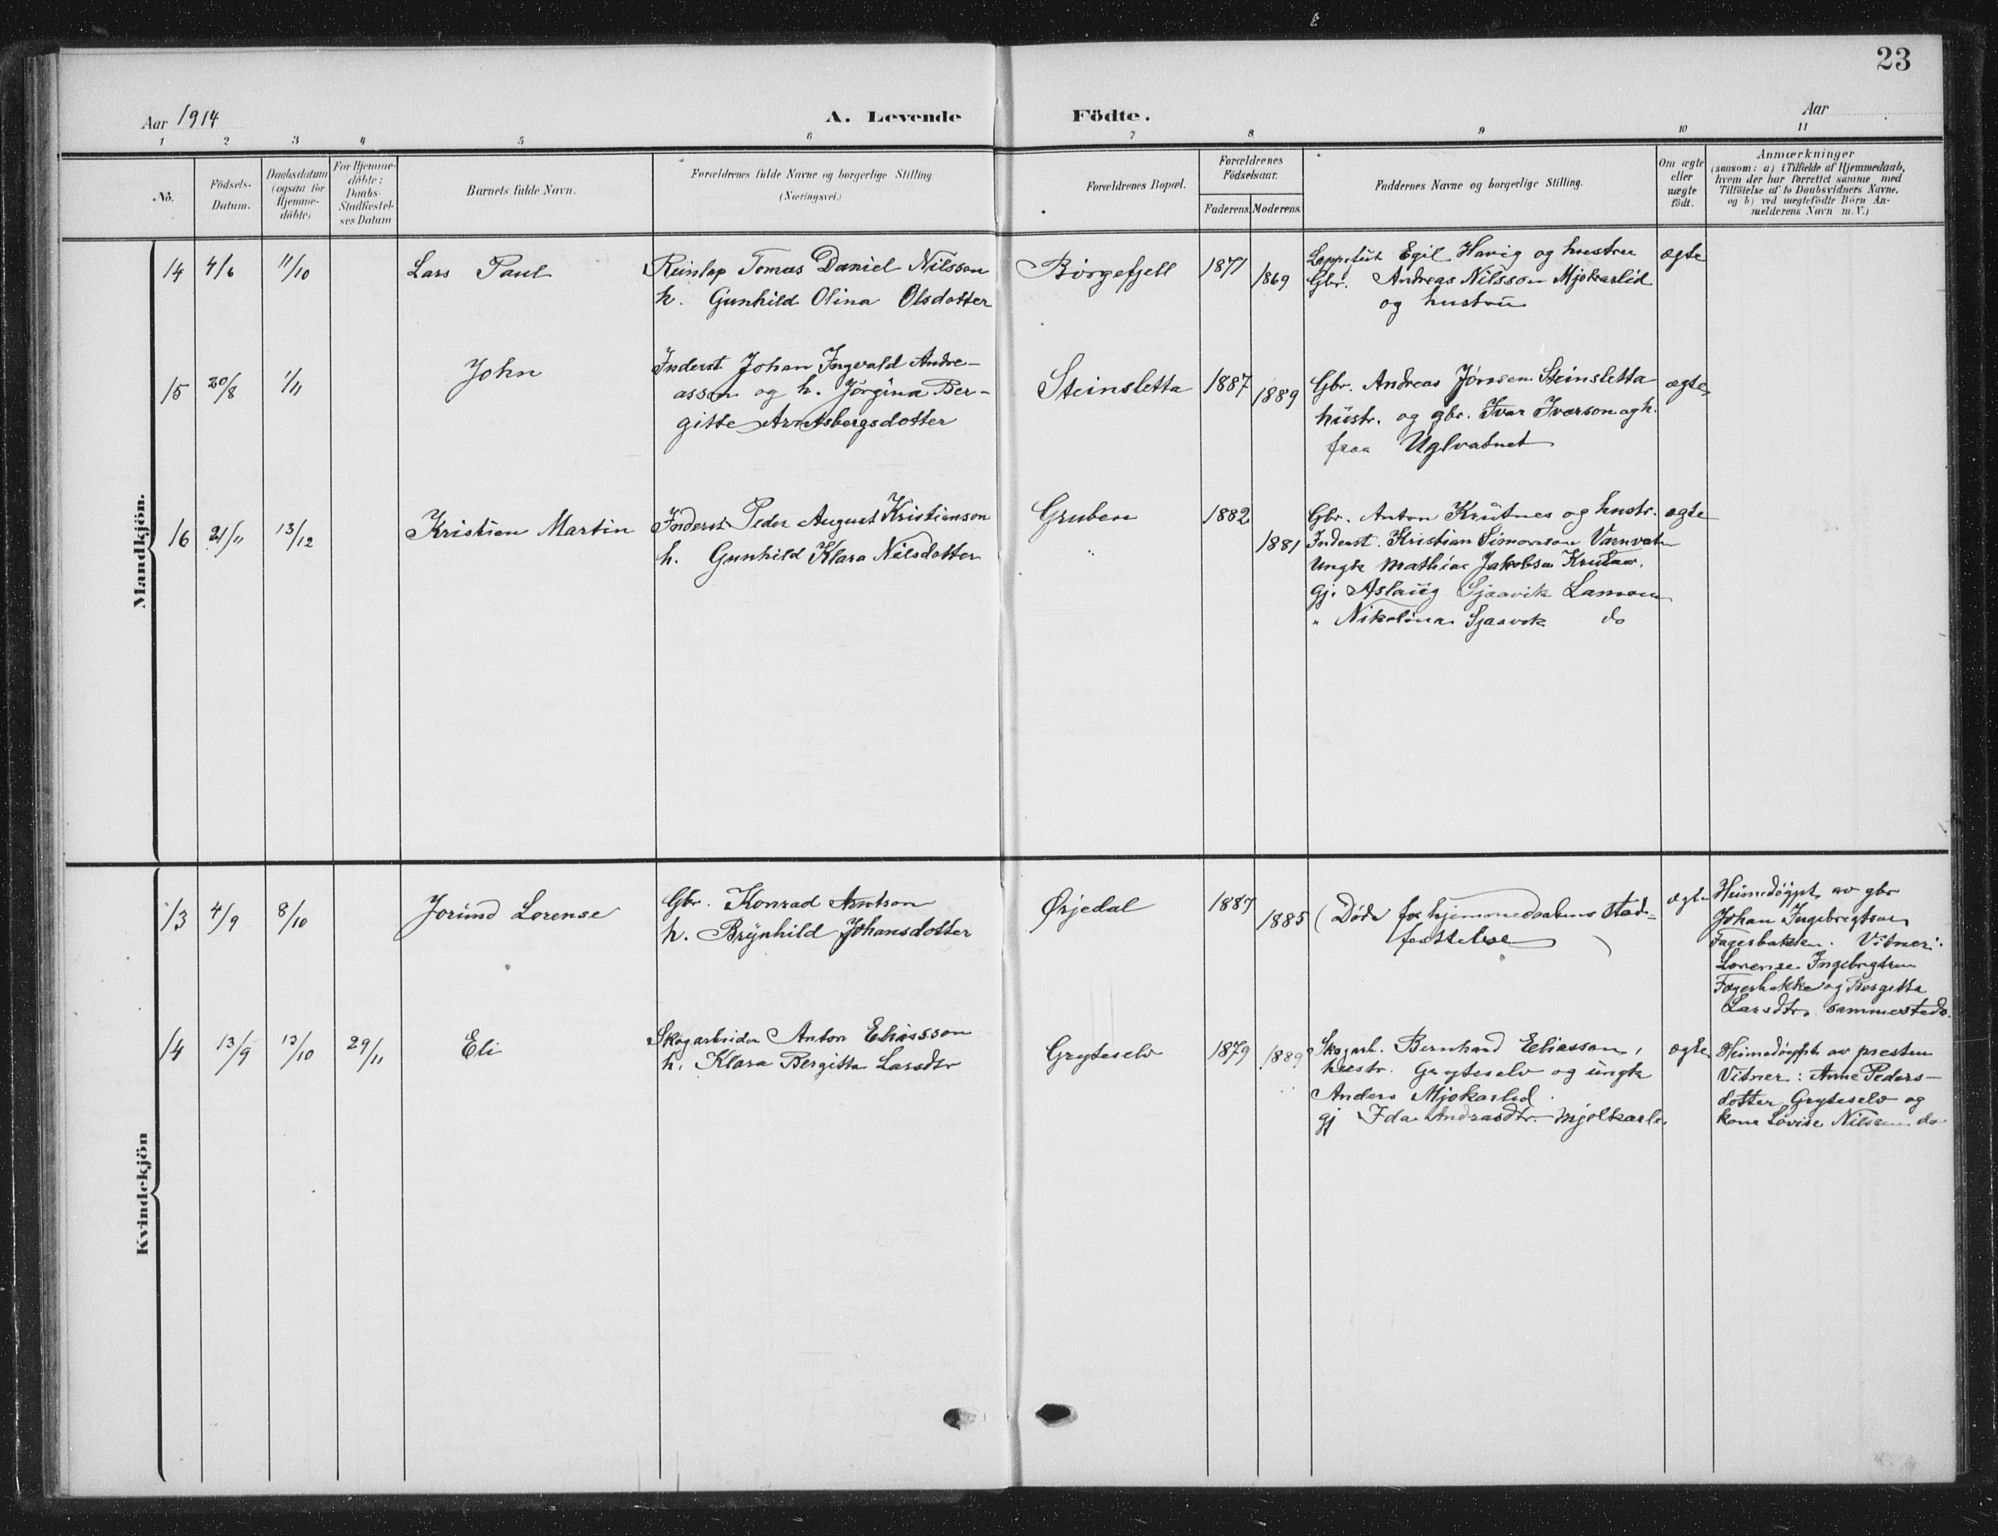 23
Aar 1914
A. Levende Födte.
Aar
1 2 3 4 5 6 7 8 9 10 11
No.
Födsels-
Datum.
Daabsdatum
(ogsaa for
Hjemme-
döbte)
For Hjemme-
döbte:
Daabs-
Stadfæstel-
ses Datum
Barnets fulde Navn.
Forældrenes fulde Navne og borgerlige Stilling
(Næringsvei.)
Forældrenes Bopæl.
Forældrenes
Födselsaar.
Faderens. Moderens.
Faddernes Navne og borgerlige Stilling.
Om ægte
eller
uægte
födt.
Anmærkninger
(saasom: a) i Tilfælde af Hjemmedaab,
hvem der har forrettet samme med
Tilföielse af to Daabsvidners Navne,
og b) ved uægtefödte Börn An-
melderens Navn m. V.)
Mandkjön.
14 4/6 11/10 Lars Paul
Reinlap Tomas Daniel Nilsson
h. Gunhild Olina Olsdotter
Børgefjell 1871 1869
Egil Havig og hustru
Gbr. Andreas Nilsson Mjolkarlid
og hustru
ægte
15 20/8 1/11 John
Inderst Johan Ingvald Andre-
assen og h. Jørgina Ber-
gitte Arntsbergsdotter
Steinsletta 1887 1889
Gbr. Andreas Jønsen Steinsletta
hustr. og gbr. Ivar Iverson og h.
fraa Uglvatnet
ægte
16 21/11 13/12 Kristian Martin
Inderst Peder August Kristianson
h. Gunhild Klara Nilsdotter
Gruben 1882
" 1881
Gbr. Anton Krutnes og hustr.
Inderst. Kristian Simonson Varnvatn
Ungk Mathias Jakobsen
gj. Aslaug Sjaavik
" Nikolina Sjaavik do
ægte
Kvindekjön
13 4/9 8/10 Jorund Lorense
Gbr. Konrad Arntson
h. Brynhild Johansdotter
Ørjedal 1887 1885
(Døde før hjemmedaabens stad-
festtelse)
ægte
Heimedøypt av gbr
Johan Ingebregtson
Fagerbakken. Vitner:
Lorense Ingebregtsen
Fagerbakke og Bergitta
Larsdtr. sammesteds.
14 13/9 13/10 29/11 Eli
Skogarbeider Anton Eliasson
h. Klara Bergitta Larsdtr
Gryteselv 1879 1889
Skogarb. Bernhard Eliasson,
hustr. Gryteselv og ungk
Anders Mjolkarlid
gj Ida Andrasdtr. Mjolkarli.
ægte
Heimedøypt av presten
Vitner: Anne Peders-
dotter Gryteselv og
kone Lovise Nilssen do